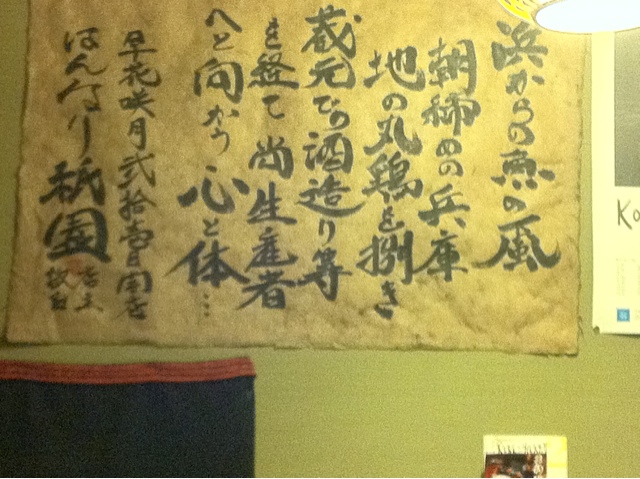 浜からの魚の風
朝締めの兵庫
地の丸鶏を捌き
蔵元での酒造り等
を経て 尚生産者
へと向かう 心と体…
早花咲月弐拾壱日開店
はんなり 祇園 店主
Ko